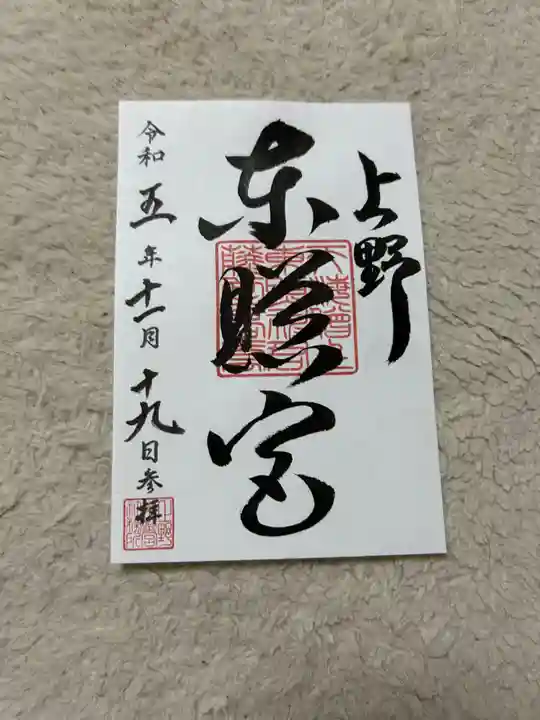 上野
東照宮
令和五年十一月十九日参拝